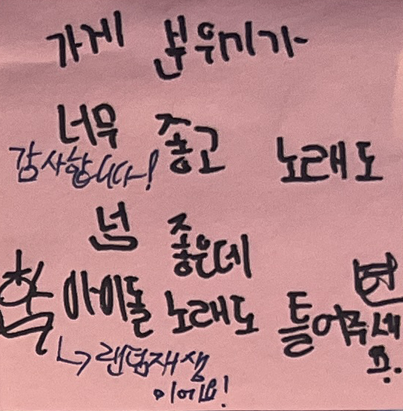 가게 분위기가
너무 좋고 노래도
감사합니다~!
넘 좋은데
아이돌 노래도 틀어주세
요.
↳ 랜덤재생
이어요!